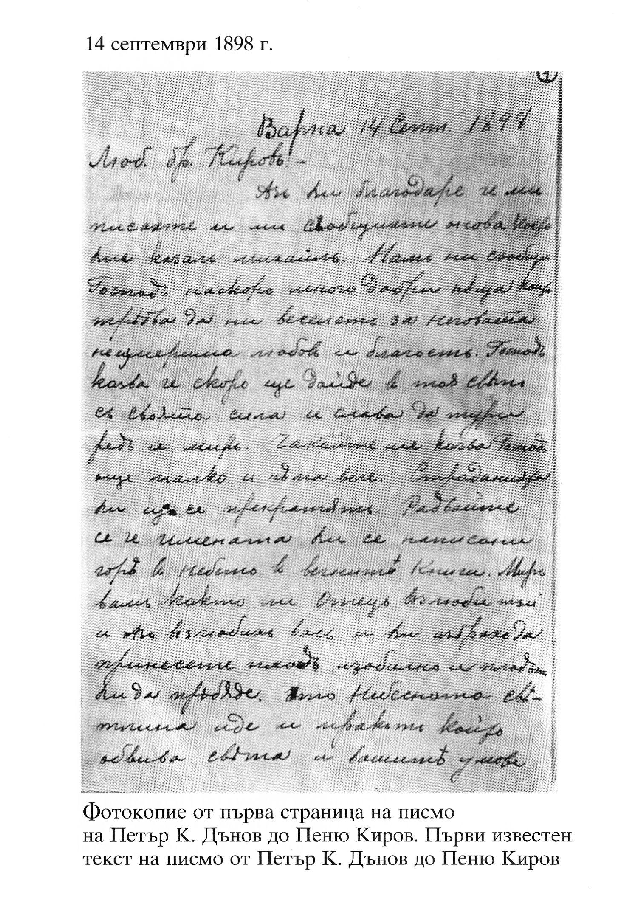 14 септември 1898 г.
1
Варна 14 Септ. 1898
Люб. бр. Кировъ! –
Азъ ви благодаре че ми
писахте и ми съобщихте онова
казалъ михаилъ. Намъ ни съобщи
Господъ наскоро много добри неща
трѣбва да ни веселетъ за неговата
неизмерима любов и благость. Господъ
казва че скоро ще дойде в тоя свѣтъ
съ своята сила и слава да тури
редъ и миръ. Чакайте ме казва Господ
още малко и нѣма вече. Страданията
ви ще се прекратятъ. Радвайте
се че имената ви се написани
горѣ в небето в вечнитѣ Книги. Миръ
вамъ, както ме Отецъ възлюби тъй
и азъ възлюбилъ васъ и ви избрахъ да
принесете плодъ изобилно и плодът
ви да прѣбѫде. Ето Небесната свѣ-
тлина иде и мракътъ който
обвива свѣта и вашитѣ умове
Фотокопие от първа страница на писмо
на Петър К. Дънов до Пеню Киров. Първи известен
текст на писмо от Петър К. Дънов до Пеню Киров